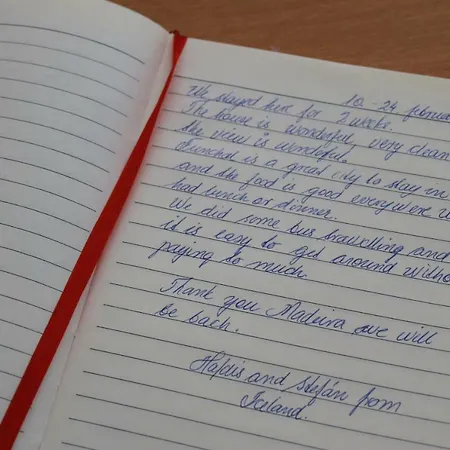 10-24 februa
We stayed here for 2 weeks.
The house is wonderful, very clean
the view is wonderful.
Funchal is a great city to stay in
and the food is good everywere w
had lunch or dinner.
We did some bus travelling and
it is easy to get around witho
paying to much
Thank you Madeira we will
be back.
Hafdis and Stefán from
Iceland.